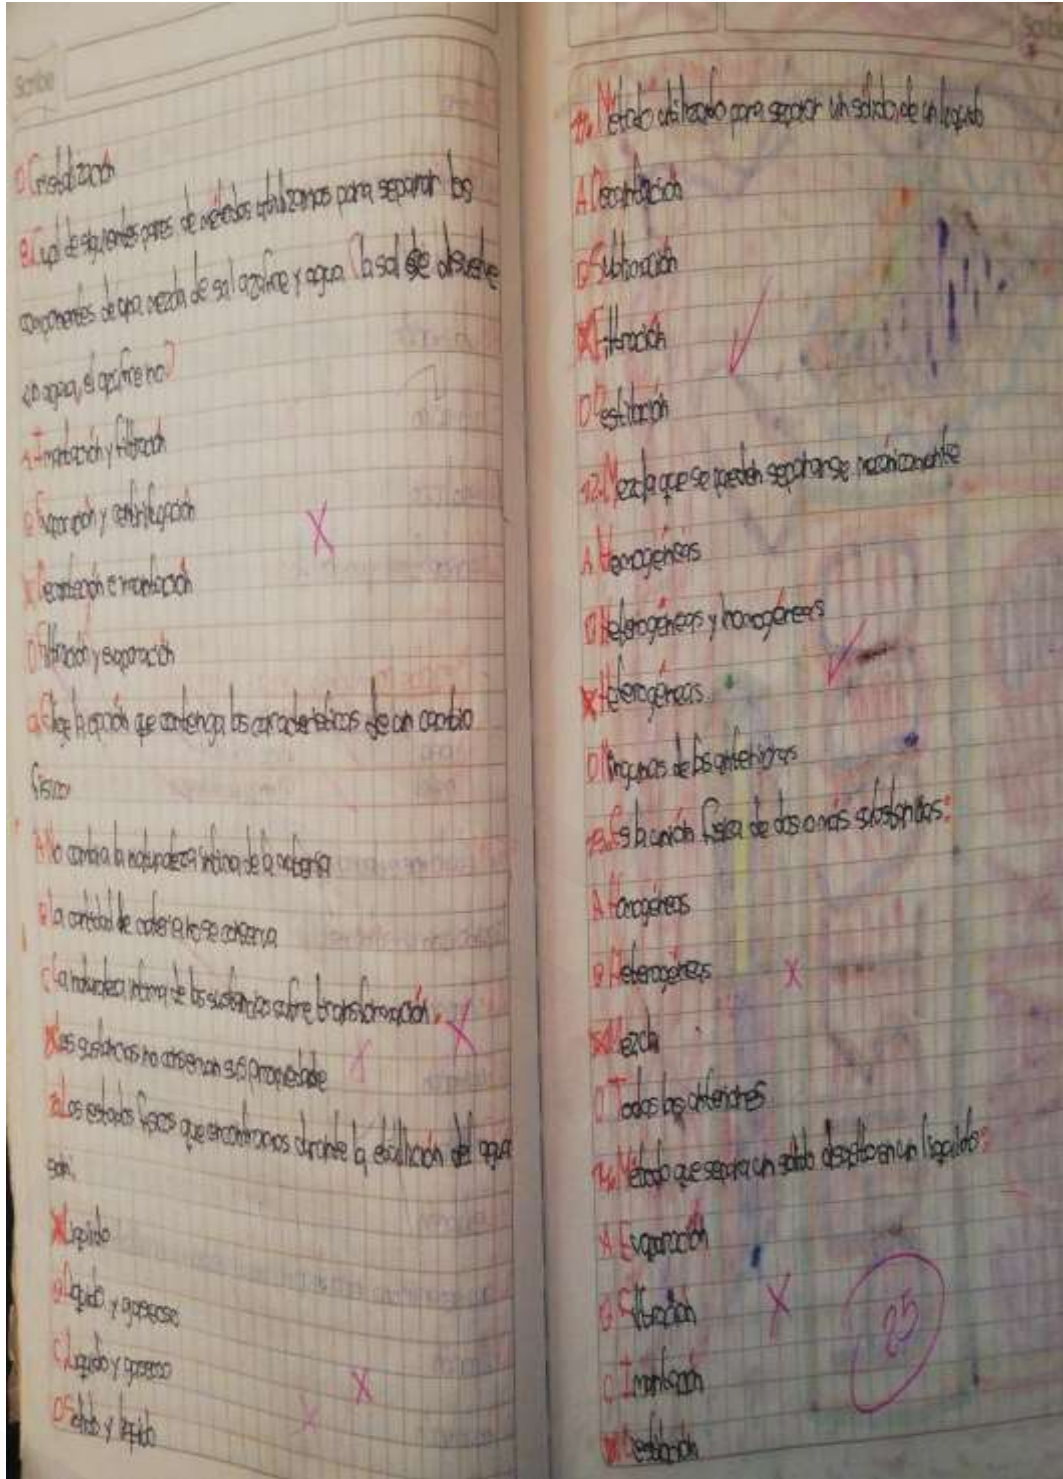 Scribe
D Cristalización
8. Cual de siguientes pares de métodos utilizamos para separar los
componentes de una mezcla de sal azufre y agua (la sal se disuelve
en agua, el azufre no)
A Imantación y filtración
B Evaporación y centrifugación
Decantación e imantación
D Filtración y evaporación
9. Elige la opción que contenga las características de un cambio
físico
A No cambia la naturaleza íntima de la materia
B La cantidad de materia no se conserva
C La naturaleza íntima de las sustancias sufre transformación.
Las sustancias no conservan sus propiedade
10. Los estados físicos que encontramos durante la ebullición del agua
son:
Líquido
B Líquido y gaseoso
C Líquido y gaseoso
D Sólido y líquido
Scribe
11. Método utilizado para separar un sólido, de un líquido
A Decantación
Sublimación
Filtración
D Destilación
12. Mezcla que se pueden separarse mecánicamente
A Homogéneas
Heterogéneas y homogéneas
Heterogéneas
D Ningunas de las anteriores
13. Es la unión física de dos o más substancias:
A Homogéneas
B Heterogéneas
Mezcla
D Todas las anteriores
14. Método que separa un solido disuelto en un líquido:
A Evaporación
B Filtración
C Imantación
Destilación
25